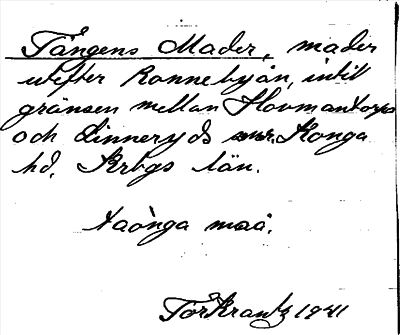 Tångens Mader, mader
utefter Ronnebyån, intill
gränsen mellan Hovmantorps
och Linneryds snr. Konga
hd, Krbgs län.
maå.
Tor Krantz 1941